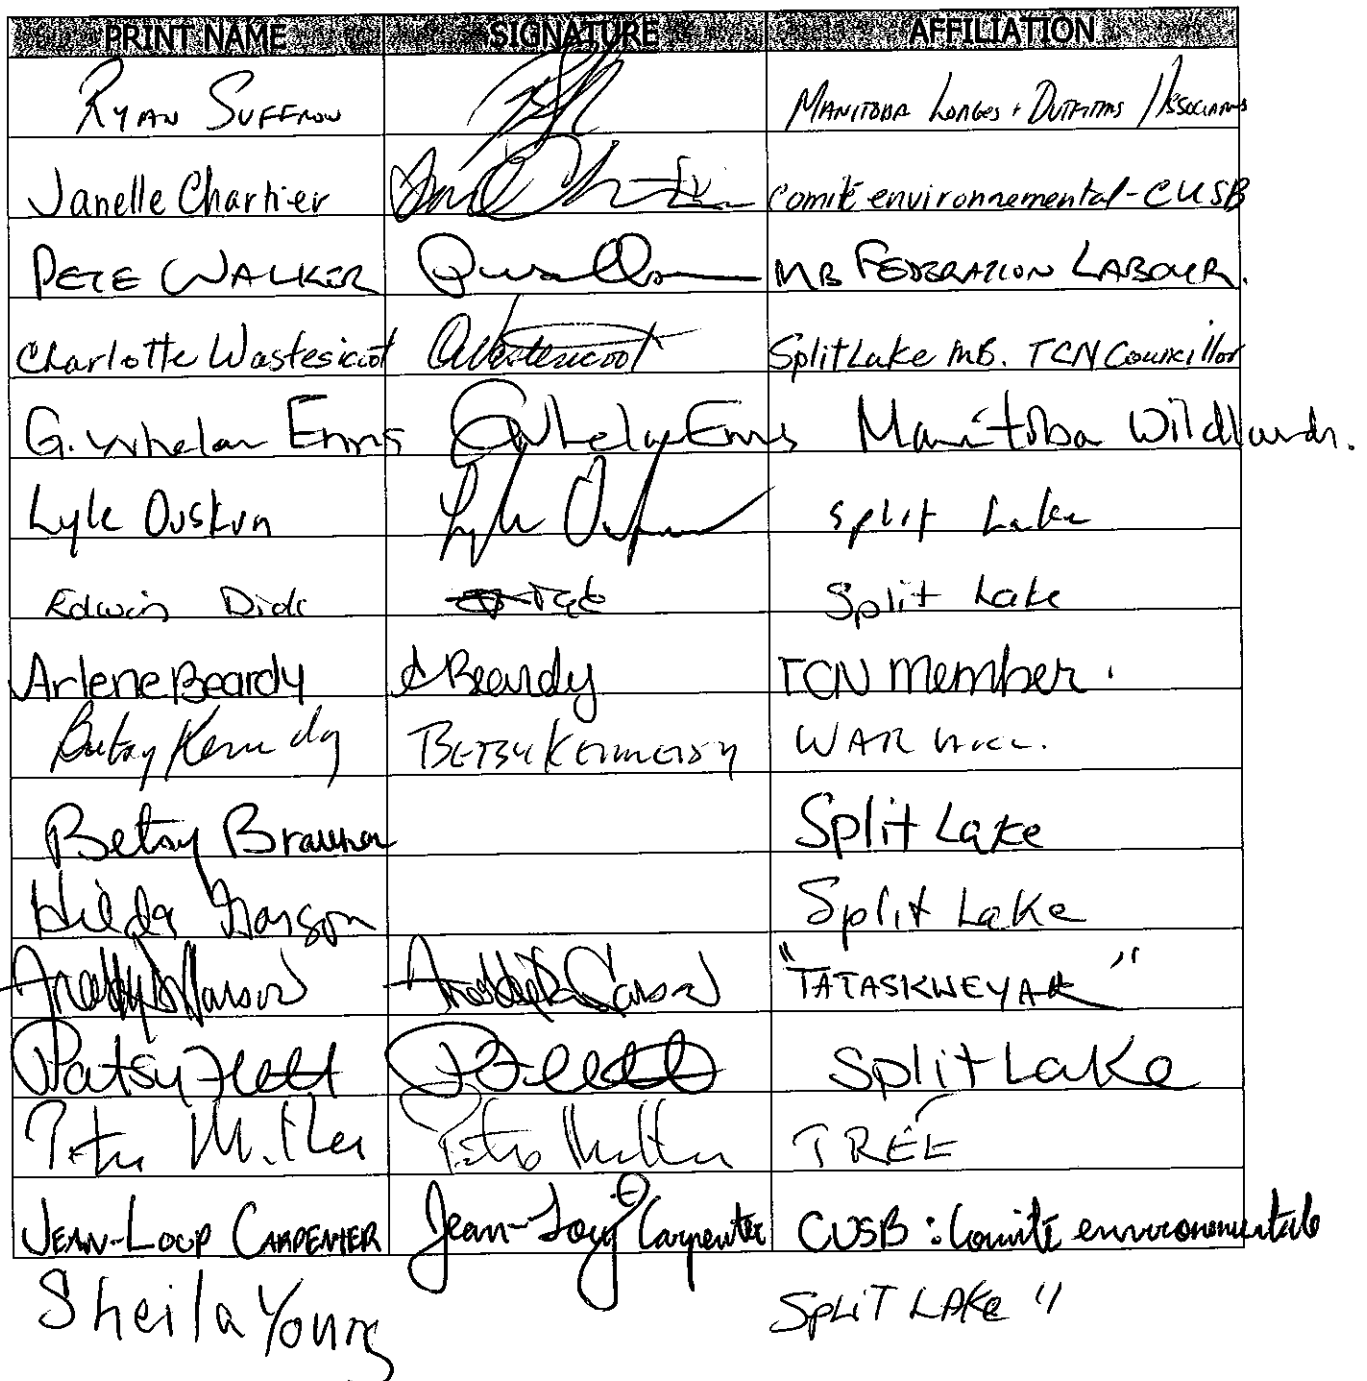 PRINT NAME SIGNATURE AFFILIATION
RYAN SUFFRON MANITOBA LODGES + OUTFITTERS ASSOCIATIONS
Janelle Chartier comité environnemental - CUSB
PETE WALKER MB FEDERATION LABOUR.
Charlotte Wastesicoot CWastesicoot Split Lake MB. TCN Councillor
G. Whelan Enns GWhelan Enns Manitoba Wildlands.
Lyle Ouskun Lyle Split Lake
Edwin Dick Split Lake
Arlene Beardy ABeardy TCN member.
Betsy Kennedy BETSY KENNEDY WAR
Betsy Braun Split Lake
Hilda Garson Split Lake
Garson "TATASKWEYAK"
Patsy Flett PFlett Split Lake
Peter Miller Peter Miller TREE
JEAN-LOUP CARPENTER Jean-Loup Carpenter CUSB : Comité environnementale
Sheila Young SPLIT LAKE "